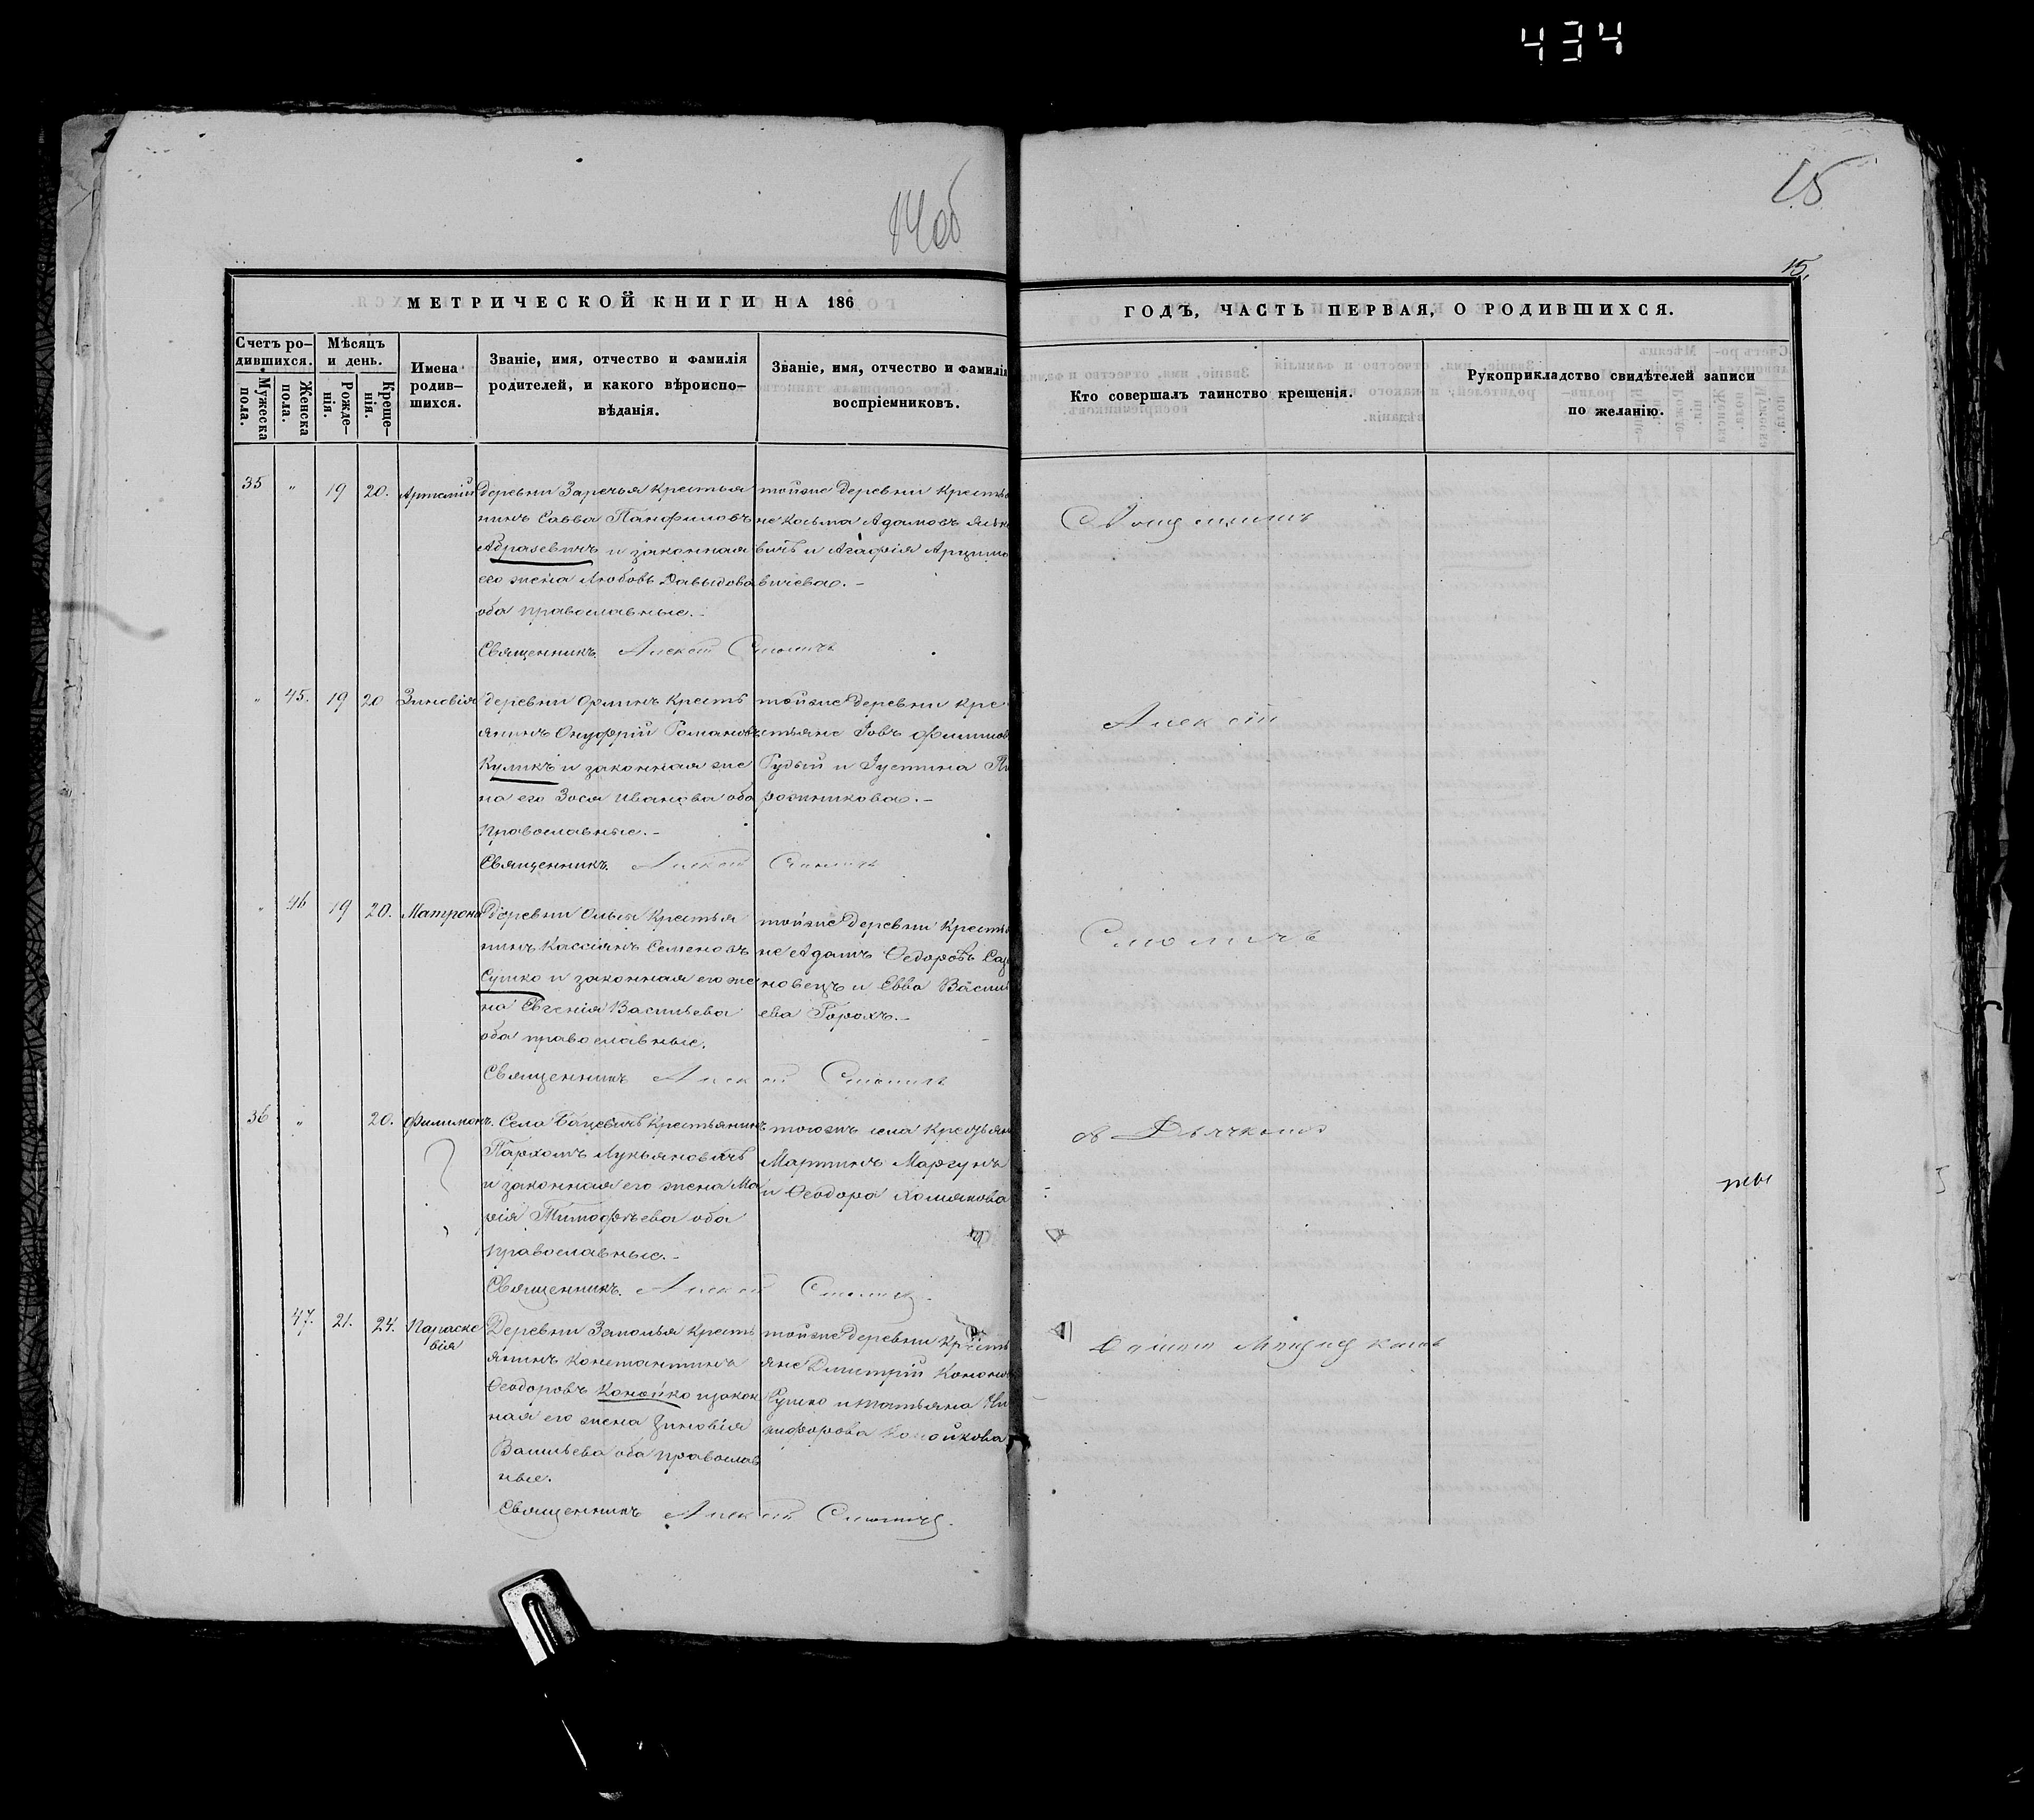 434
14об
15
15.
МЕТРИЧЕСКОЙ КНИГИ НА 186
ГОДЪ, ЧАСТЬ ПЕРВАЯ, О РОДИВШИХСЯ.
Счетъ ро-
дившихся.
Мужеска
пола.
Женска
пола.
Мѣсяцъ
и день.
Рожде-
нія.
Креще-
нія.
Имена
родив-
шихся.
Званіе, имя, отчество и фамилія
родителей, и какого вѣроиспо-
вѣданія.
Званіе, имя, отчество и фамилія
воспріемниковъ.
Кто совершалъ таинство крещенія.
Рукоприкладство свидѣтелей записи
по желанію.
35 " 19 20. Артемій
Деревни Заречья Крестья
нинъ Савва Панфиловъ
Абразевичъ и законная
его жена Любовь Давыдова
оба православные.-
Священникъ Алексѣй Смоличъ
тойже деревни Крестья
не Косьма Адамовъ
вичъ и Агафія
вичева.-
" 45. 19 20 Зиновія
Деревни Орлинъ Кресть
янинъ Онуфрій Романовъ
Куликъ и законная же
на его Зося Иванова оба
Православные.-
Священникъ. Алексѣй Смоличъ
тойже Деревни Кре
стьяне Іовъ Филипов
Рудый и Іустина
рожникова.-
Алексѣй
" 46 19 20. Матрона
Деревни Ольлы Крестья
нинъ Кассіянъ Семеновъ
Сушко и законная его же
на Евгенія Васильева
оба православные.
Священникъ Алексѣй Смоличъ
тойже Деревни Кресть
не Адамъ Ѳедоровъ Саз
новецъ и Евва Васил
ева Горохъ.-
Смоличъ
36 " 20. Филимонъ.
Села Бацевичъ Крестьянинъ
Пархомъ Лукьяновичъ
и законная его жена Ма
рія Тимофѣева оба
православные.-
Священникъ. Алексѣй Смоличъ
тогожъ села Крестьян
Мартинъ Маргунъ
и Ѳеодора Холякова
съ Дьячкомъ
47. 21. 24. Параске
вія
Деревни Заполья Кресть
янинъ Константинъ
Ѳеодоровъ Конойко и закон
ная его жена Зиновія
Васильева оба православ
ные.
Священникъ Алексѣй Смоличъ.
тойже Деревни Кресть
яне Дмитрій Конон
Сушко и татьяна Ни
кифорова Конойкова